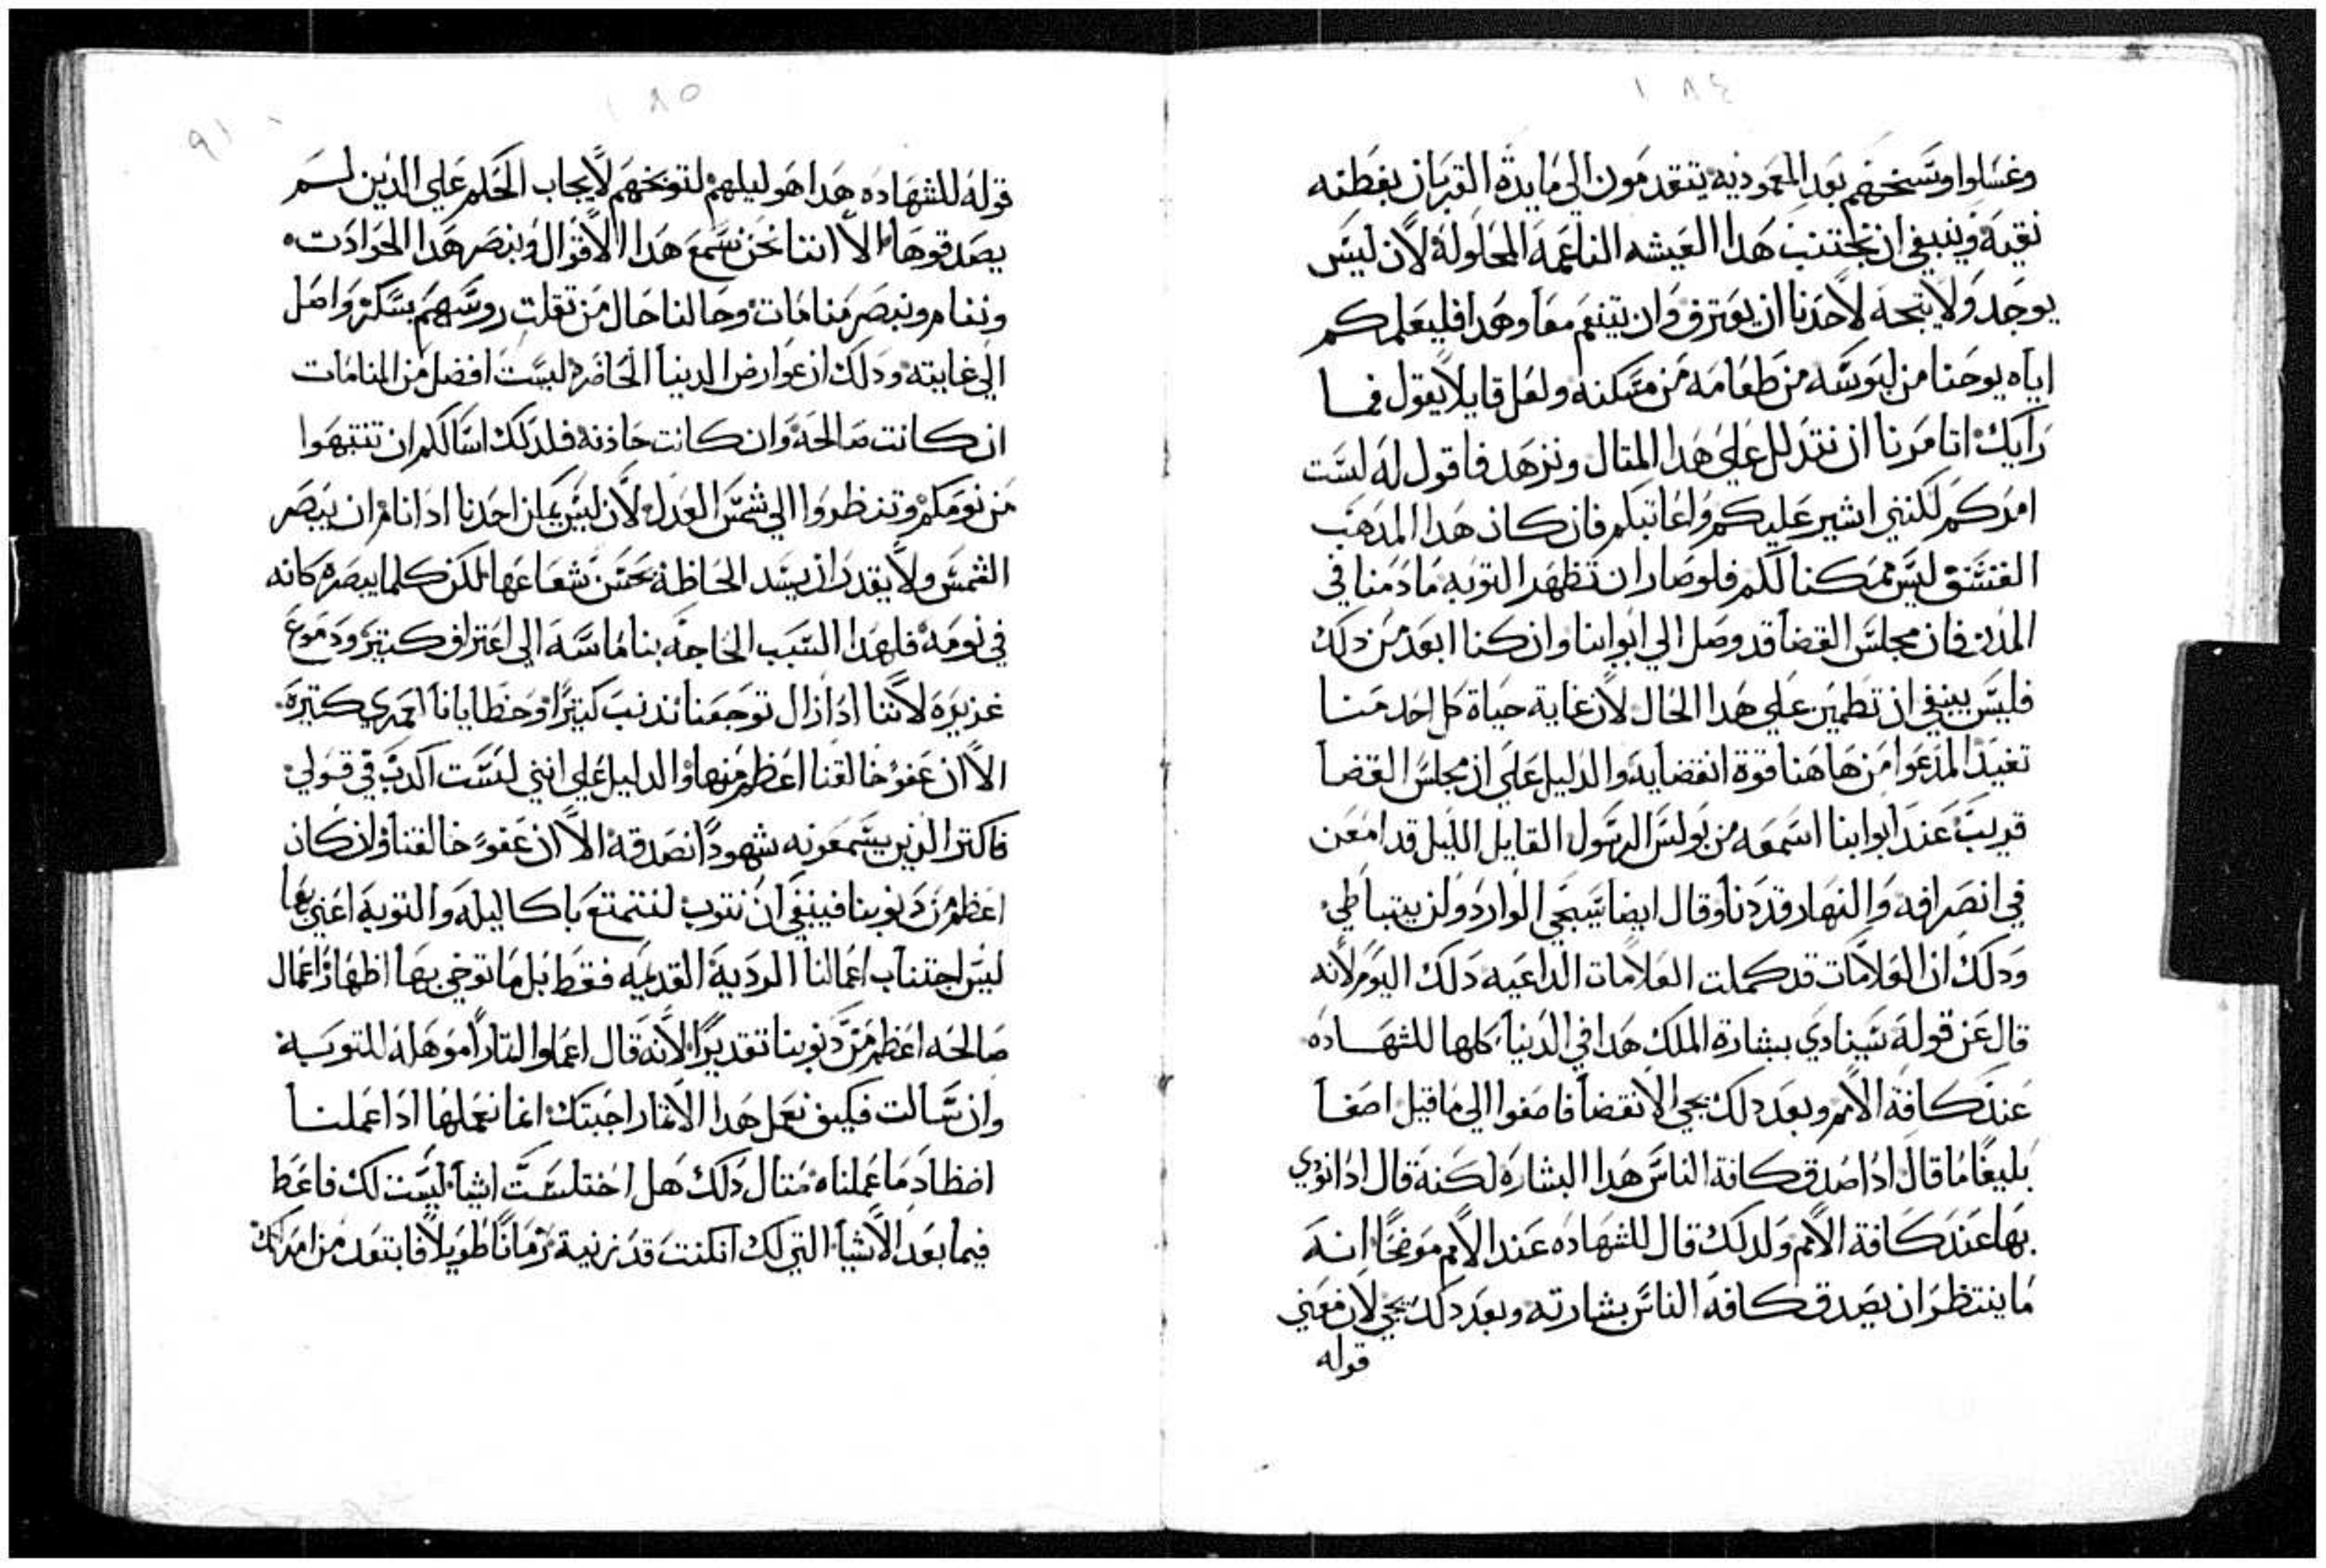 ١٨٤
وغسلوا وسخهم بعد المعموديه يتقدمون الي مايدة القربان بفطنه
نقيه وينبغي ان نجتنب هدا العيشه الناعمه المحلوله لان ليس
يوجد ولا يتجه لاحدنا ان يعترف وان يتنعم معا وهدا فليعلمكم
اياه يوحنا من لبوسه من طعامه من مسكنه ولعل قايلا يقول فما
رايك اتامرنا ان نتدلل علي هدا المتال ونزهد فاقول له لست
امركم لكنني اشير عليكم واعاتبكم فان كان هدا المدهب
ليس ممكنا لكم فلو صار ان تظهر التوبه ما دمنا في
المدن فان مجلس القضا قد وصل الي ابوابنا وان كنا ابعد من دلك
فليس ينبغي ان تطمين علي هدا الحال لان غاية حياة كل احد منا
تفيد المدعوا من هاهنا قوة انقضايه والدليل علي ان مجلس القضا
قريب عند ابوابنا اسمعه من بولس الرسول القايل الليل قد امعن
في انصرافه والنهار قد دنا وقال ايضا سيجي الوارد ولن يتباطي
ودلك ان العلامات قد كملت العلامات الداعيه دلك اليوم لانه
قال عن قوله سينادي ببشارة الملك هدا في الدنيا كلها للشهاده
عند كافة الامم وبعد دلك يجي الانقضا فاصغوا الي ما قيل اصغا
بليغا ما قال ادا صدق كافة الناس هدا البشاره لكنه قال ادا نودي
بها عند كافة الامم ولدلك قال للشهاده عند الامم موضحا انه
ما ينتظر ان يصدق كافه الناس بشارته وبعد دلك يجي لان معني
قوله
١٨٥
٩١
قوله للشهاده هدا هو ليلهم لتوبخهم لايجاب الحكم علي الدين لم
يصدقوها الا اننا نحن نسمع هدا الاقوال ونبصر هدا الحوادت
وننام ونبصر منامات وحالنا حال من تقلت روسهم بسكر واصل
الي غايته ودلك ان عوارض الدنيا الحاضره ليست افضل من المنامات
ان كانت صالحه وان كانت حادنه فلدلك اسالكم ان تنتبهوا
من نومكم وتنظروا الي شمس العدل لان ليس يمكن احدنا ادا نام ان يبصر
الشمس ولا يقدر ان يسد الحاظه بحسن شعاعها لكن كلما يبصره كانه
في نومه فلهدا السبب الحاجه بنا ماسه الي اعتراف كتير ودموع
غزيره لاننا ادا زال توجعنا ندنب كتيرا وخطايانا لعمري كتيره
الا ان عفو خالقنا اعظم منها والدليل علي انني لست اكدب في قولي
فاكتر الدين يسمعونه شهودا نصدقه الا ان عفو خالقنا وان كان
اعظم من دنوبنا فينبغي ان نتوب لنتمتع باكاليله والتوبه اعني بها
ليس اجتناب اعمالنا الرديه القديمه فقط بل ما توخي بها اظهار اعمال
صالحه اعظم من دنوبنا تقديرا لانه قال اعملوا اتمارا موهله للتوبه
وان سالت فكيف نعمل هدا الاتمار اجبتك انما نعملها ادا عملنا
اضظاد ما عملناه متال دلك هل اختلست اشيا ليست لك فاعط
فيما بعد الاشيا التي لك ان كنت قد زنية زمانا طويلا فابتعد من امراتك